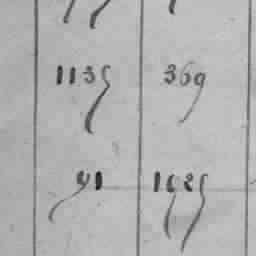 1135 369
91 1925